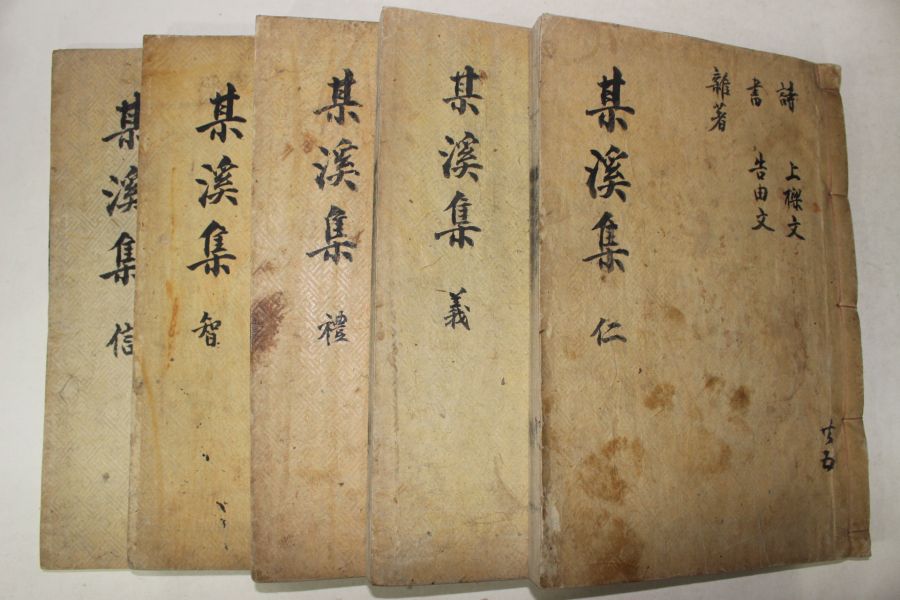 詩 上樑文
書 告由文
雜著
某溪集 仁
共五
某溪集 義
某溪集 禮
某溪集 智
某溪集 信